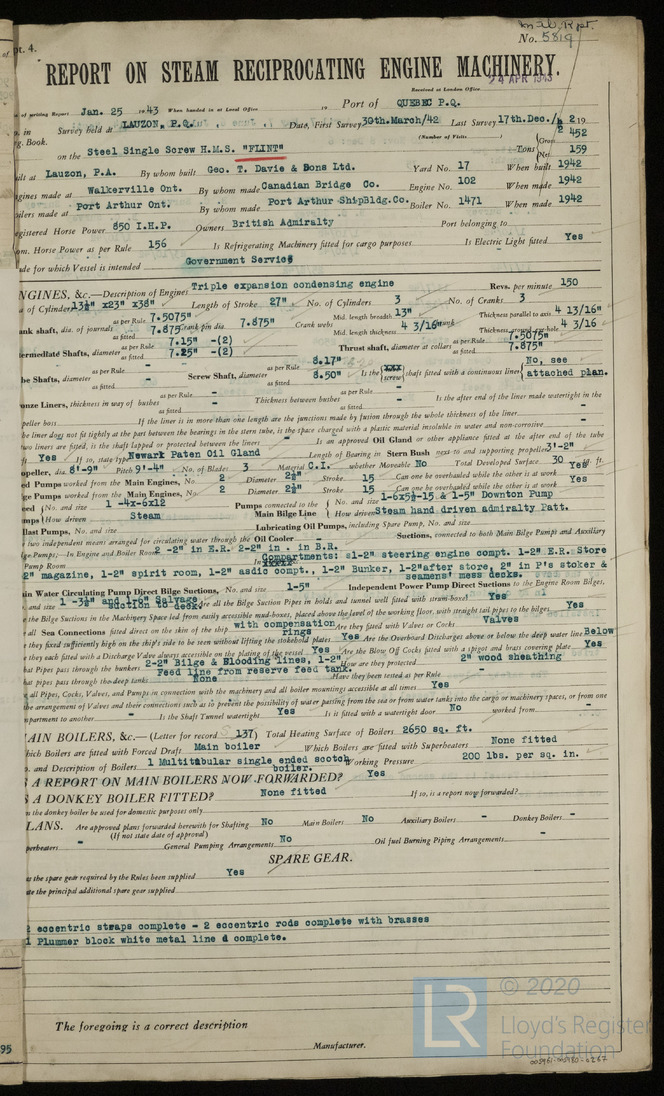 pt. 4.
No. 5819
REPORT ON STEAM RECIPROCATING ENGINE MACHINERY.
Received at London Office 24 APR 1943
of writing Report Jan. 25 1943 When handed in at Local Office 19 Port of QUEBEC P.Q.
Survey held at LAUZON, P.Q. Date, First Survey 30th.March/42 Last Survey 17th.Dec./ 2 19
g. Book. (Number of Visits) Gross 452
on the Steel Single Screw H.M.S. "FLINT" Tons Net 159
ilt at Lauzon, P.A. By whom built Geo. T. Davie & Sons Ltd. Yard No. 17 When built 1942
gines made at Walkerville Ont. By whom made Canadian Bridge Co. Engine No. 102 When made 1942
ilers made at Port Arthur Ont. By whom made Port Arthur ShipBldg.Co. Boiler No. 1471 When made 1942
egistered Horse Power 850 I.H.P. Owners British Admiralty Port belonging to
om. Horse Power as per Rule 156 Is Refrigerating Machinery fitted for cargo purposes Is Electric Light fitted Yes
ade for which Vessel is intended Government Service
NGINES, &c.—Description of Engines Triple expansion condensing engine Revs. per minute 150
a of Cylinders 13½" x23" x38" Length of Stroke 27" No. of Cylinders 3 No. of Cranks 3
ank shaft, dia. of journals as per Rule 7.5075" as fitted 7.875 Crank pin dia. 7.875" Crank webs Mid. length breadth 13" Mid. length thickness 4 3/16" Thickness parallel to axis 4 13/16" Thickness around eye-hole 4 3/16
ermediate Shafts, diameter as per Rule 7.15" -(2) as fitted 7.25" -(2) Thrust shaft, diameter at collars as per Rule 7.5075" as fitted 7.875"
be Shafts, diameter as per Rule - as fitted - Screw Shaft, diameter as per Rule 8.17" as fitted 8.50" Is the screw shaft fitted with a continuous liner No, see attached plan.
onze Liners, thickness in way of bushes as per Rule - as fitted - Thickness between bushes as per Rule - as fitted - Is the after end of the liner made watertight in the
peller boss - If the liner is in more than one length are the junctions made by fusion through the whole thickness of the liner -
he liner does not fit tightly at the part between the bearings in the stern tube, is the space charged with a plastic material insoluble in water and non-corrosive -
two liners are fitted, is the shaft lapped or protected between the liners - Is an approved Oil Gland or other appliance fitted at the after end of the tube
Yes If so, state type Newark Paten Oil Gland Length of Bearing in Stern Bush next to and supporting propeller 3'-2"
opeller, dia. 8'-9" Pitch 9'-4" No. of Blades 3 Material C.I. whether Moveable No Total Developed Surface 30 sq. ft.
ed Pumps worked from the Main Engines, No. 2 Diameter 2½" Stroke 15 Can one be overhauled while the other is at work Yes
ge Pumps worked from the Main Engines, No. 2 Diameter 2½" Stroke 15 Can one be overhauled while the other is at work Yes
eed No. and size 1 -4x-6x12 Pumps connected to the No. and size 1-6x5½-15 & 1-5" Downton Pump
mps How driven Steam Main Bilge Line How driven Steam hand driven admiralty Patt.
llast Pumps, No. and size Lubricating Oil Pumps, including Spare Pump, No. and size
two independent means arranged for circulating water through the Oil Cooler - Suctions, connected to both Main Bilge Pumps and Auxiliary
ge Pumps:—In Engine and Boiler Room 2 -2" in E.R. 2-2" in . in B.R.
Pump Room Compartments: s1-2" steering engine compt. 1-2" E.R. Store
2" magazine, 1-2" spirit room, 1-2" asdic compt., 1-2" Bunker, 1-2"after store, 2" in P's stoker & seamens' mess decks.
in Water Circulating Pump Direct Bilge Suctions, No. and size 1-5" Independent Power Pump Direct Suctions to the Engine Room Bilges,
and size 1 -3½" and 1 Salvage suction to deck Are all the Bilge Suction Pipes in holds and tunnel well fitted with strum-boxes Yes
the Bilge Suctions in the Machinery Space led from easily accessible mud-boxes, placed above the level of the working floor, with straight tail pipes to the bilges Yes
all Sea Connections fitted direct on the skin of the ship with compensation rings Are they fitted with Valves or Cocks Valves
they fixed sufficiently high on the ship's side to be seen without lifting the stokehold plates Yes Are the Overboard Discharges above or below the deep water line Below
they each fitted with a Discharge Valve always accessible on the plating of the vessel Yes Are the Blow Off Cocks fitted with a spigot and brass covering plate Yes
hat Pipes pass through the bunkers 2-2" Bilge & Blooding lines, 1-2" Feed line from reserve feed tank. How are they protected 2" wood sheathing
hat pipes pass through the deep tanks None Have they been tested as per Rule -
all Pipes, Cocks, Valves, and Pumps in connection with the machinery and all boiler mountings accessible at all times Yes
the arrangement of Valves and their connections such as to prevent the possibility of water passing from the sea or from water tanks into the cargo or machinery spaces, or from one
partment to another - Is the Shaft Tunnel watertight Yes Is it fitted with a watertight door No worked from -
AIN BOILERS, &c.—(Letter for record 137) Total Heating Surface of Boilers 2650 sq. ft.
hich Boilers are fitted with Forced Draft Main boiler Which Boilers are fitted with Superheaters None fitted
o. and Description of Boilers 1 Multitubular single ended scotch boiler. Working Pressure 200 lbs. per sq. in.
S A REPORT ON MAIN BOILERS NOW FORWARDED? Yes
S A DONKEY BOILER FITTED? None fitted If so, is a report now forwarded? -
n the donkey boiler be used for domestic purposes only -
LANS. Are approved plans forwarded herewith for Shafting No Main Boilers No Auxiliary Boilers - Donkey Boilers -
(If not state date of approval)
perheaters - General Pumping Arrangements No Oil fuel Burning Piping Arrangements -
SPARE GEAR.
as the spare gear required by the Rules been supplied Yes
ate the principal additional spare gear supplied
2 eccentric straps complete - 2 eccentric rods complete with brasses
1 Plummer block white metal line d complete.
The foregoing is a correct description
Manufacturer.
95
LR
© 2020
Lloyd's Register
Foundation
005961-005980-0267